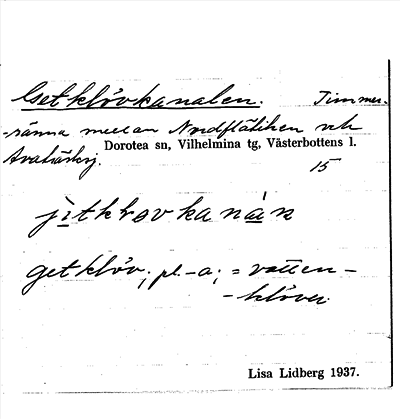 Getklövkanalen. Timmer-
-ränna mellan Nordflåtiken och
Dorotea sn, Vilhelmina tg, Västerbottens l.
Avatäskj. 15
jìtkrovkanàn
getklöv, pl. -a; = vatten-
-klöver.
Lisa Lidberg 1937.